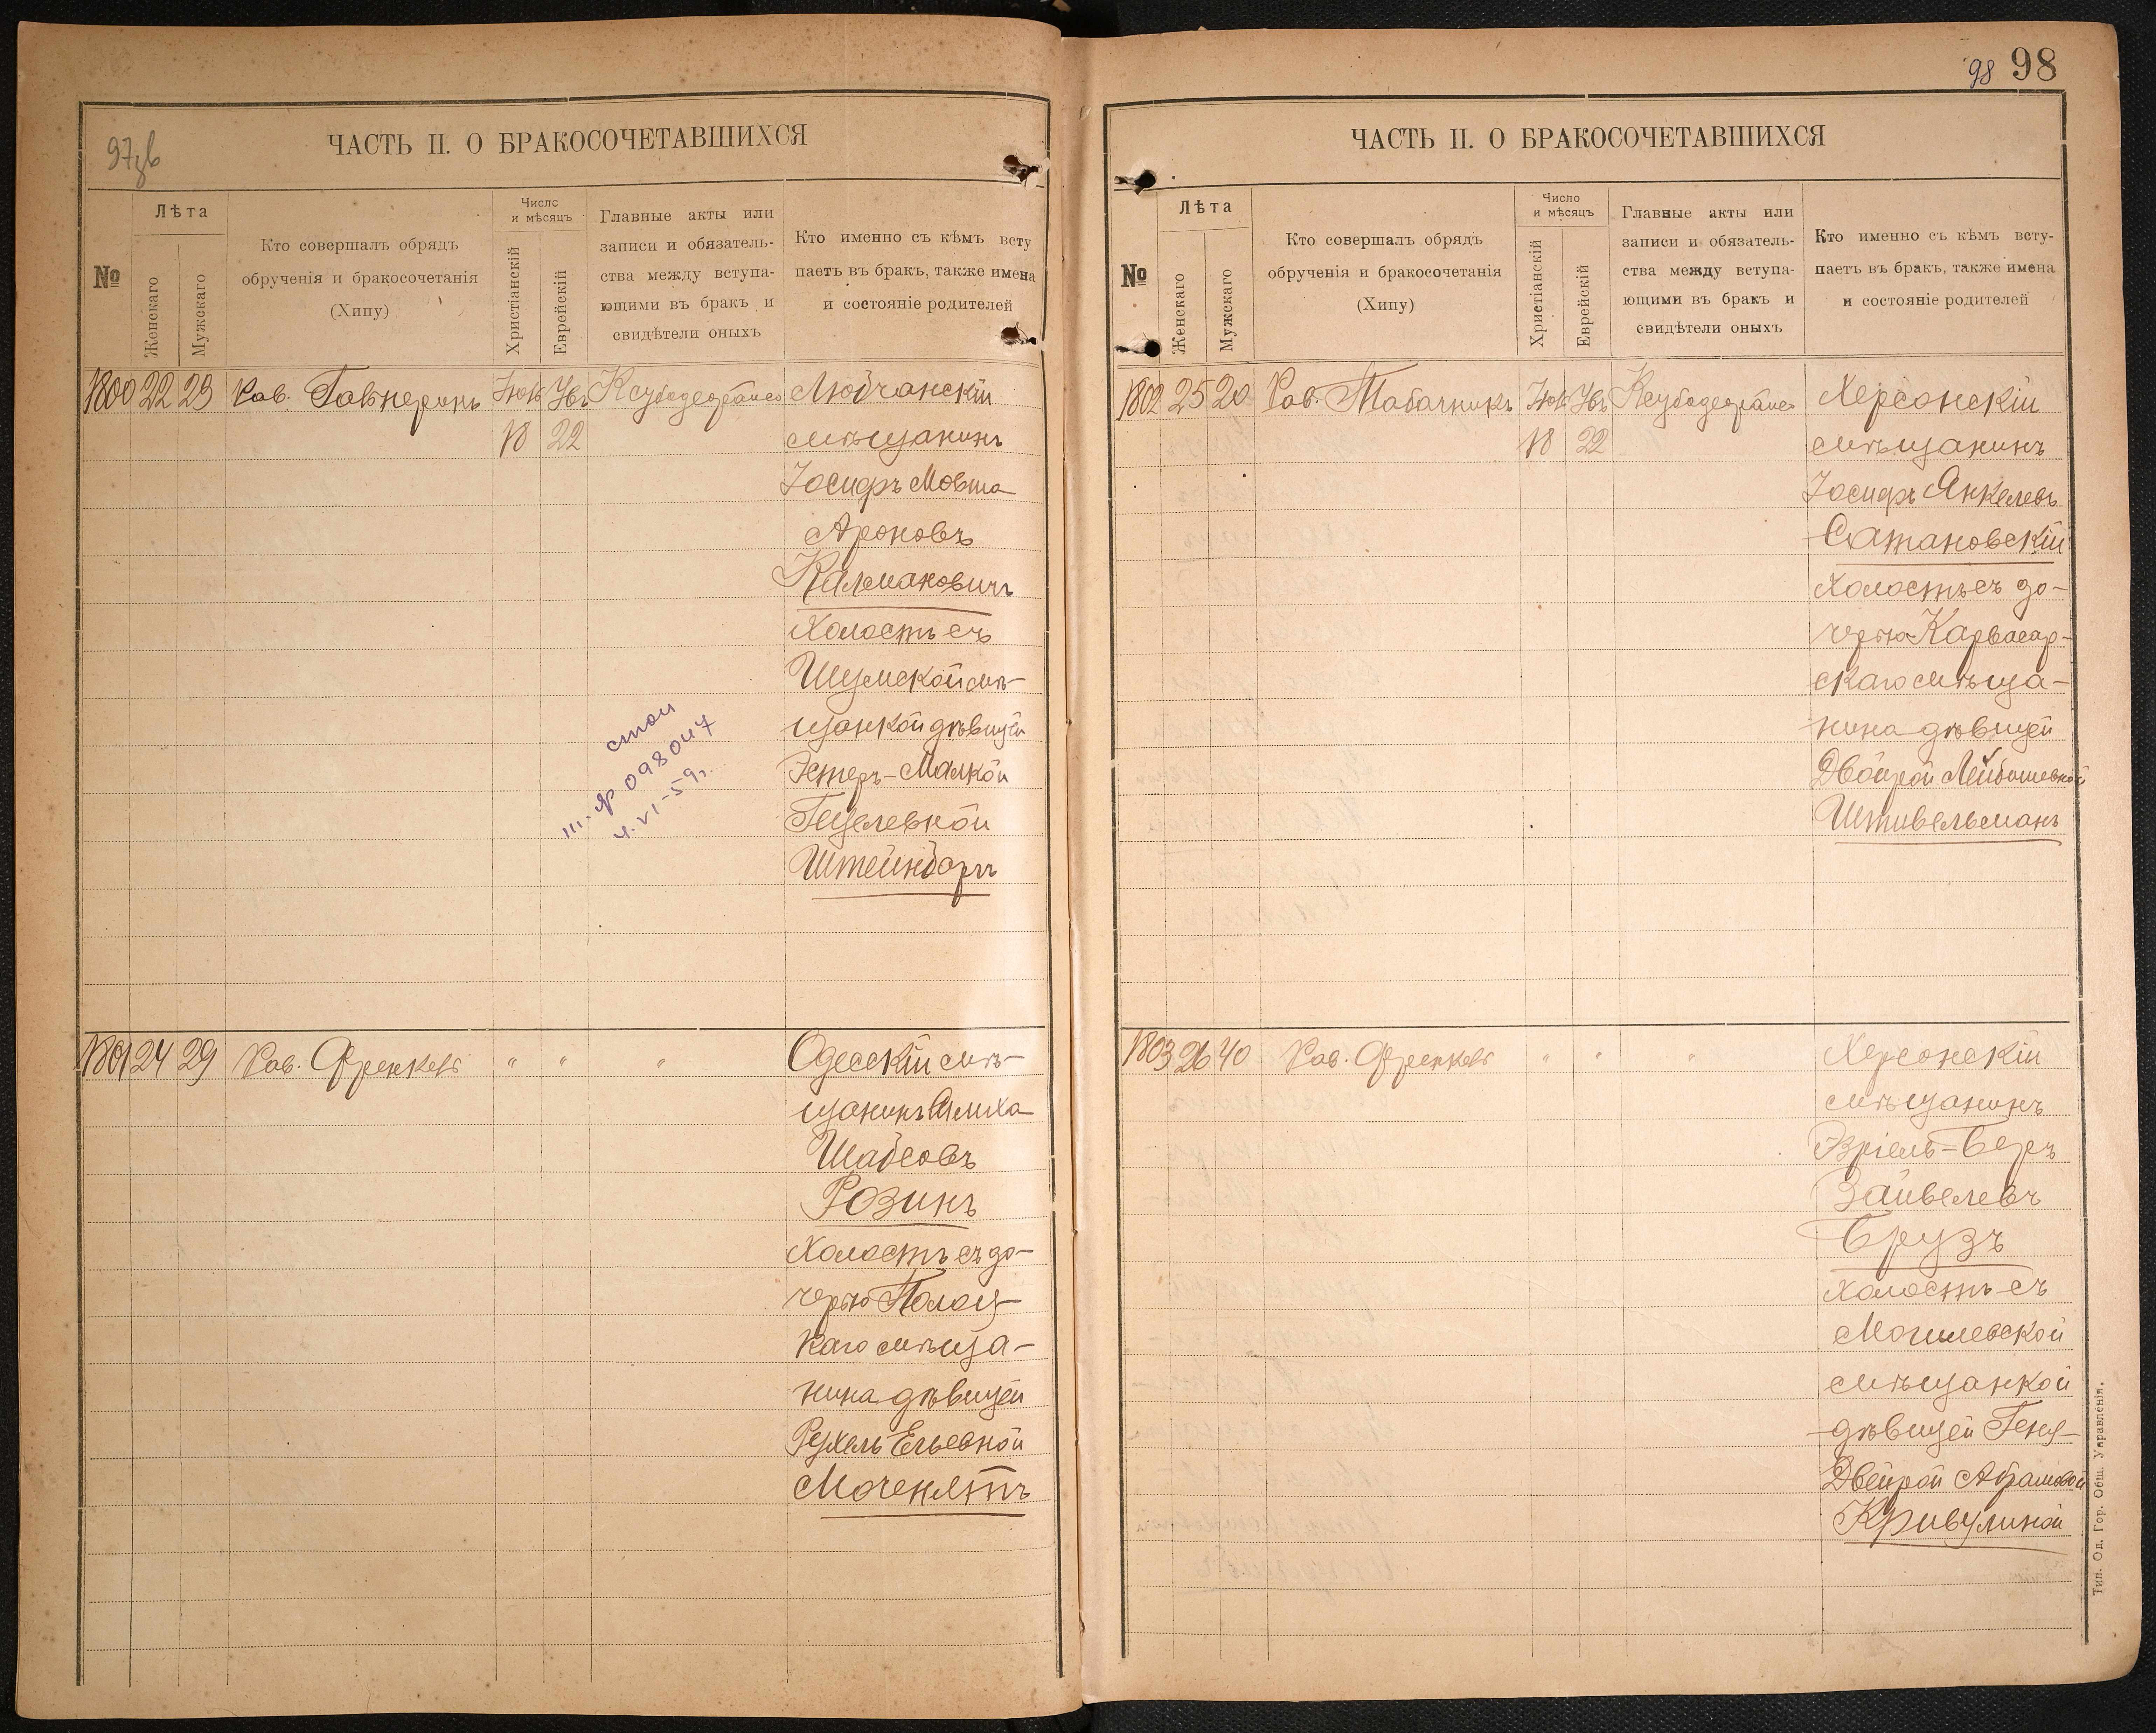 97зв
ЧАСТЬ II. О БРАКОСОЧЕТАВШИХСЯ
№
Лѣта
Женскаго
Мужскаго
Кто совершалъ обрядъ
обрученія и бракосочетанія
(Хипу)
Число
и мѣсяцъ
Христіанскій
Еврейскій
Главные акты или
записи и обязатель-
ства между вступа-
ющими въ бракъ и
свидѣтели оныхъ
Кто именно съ кѣмъ всту
паетъ въ бракъ, также имена
и состояніе родителей
1800 22 23 Рав. Іюль
18 22
Любчанскій
мѣщанинъ
Іосифъ Мовша
Ароновъ
Калмановичъ
холостъ съ
Шумской мѣ-
щанкой дѣвицей
Эстеръ-Малкой
Гецелевной
Штейнбаргъ
4.VI-59г.
1801 24 29 Рав. Френкель " " "
Одесскій мѣ-
щанинъ
Шабсовъ
Розинъ
холостъ съ до-
черью Полоц-
каго мѣща-
нина дѣвицей
Рухель Ельевной
Моченятъ
98 98
ЧАСТЬ II. О БРАКОСОЧЕТАВШИХСЯ
№
Лѣта
Женскаго
Мужскаго
Кто совершалъ обрядъ
обрученія и бракосочетанія
(Хипу)
Число
и мѣсяцъ
Христіанскій
Еврейскій
Главные акты или
записи и обязатель-
ства между вступа-
ющими въ бракъ и
свидѣтели оныхъ
Кто именно съ кѣмъ всту-
паетъ въ бракъ, также имена
и состояніе родителей
1802 25 20 Рав. Табачникъ Іюль
18 22
Херсонскій
мѣщанинъ
Іосифъ Янкелевъ
Сатановскій
холостъ съ до-
черью Карвасар-
скаго мѣща-
нина дѣвицей
Двойрой Лейбишевной
Штивельманъ
1803 26 40 Рав. Френкель " " "
Херсонскій
мѣщанинъ
Эзріель-Беръ
Зайвелевъ
Брузъ
холостъ съ
Могилевской
мѣщанкой
дѣвицей Геня-
Двейрой Абрамовой
Кривулиной
Тип. Од. Гор. Общ. Управленія.